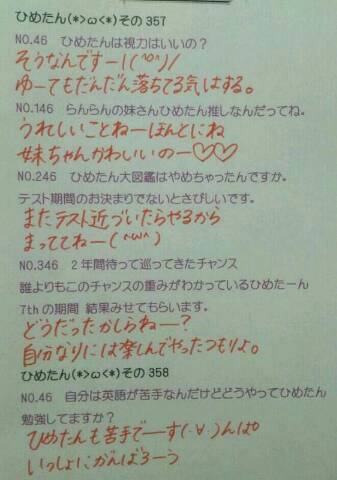 ひめたん(*>ω<*)その357
NO.46　ひめたんは視力はいいの？
そうなんですー!(^o^)/
ゆーてもだんだん落ちてる気はする。
NO.146　らんらんの妹さんひめたん推しなんだってね。
うれしいことねーほんとにね
妹ちゃんかわいいのー♡♡
NO.246　ひめたん大図鑑はやめちゃったんですか。
テスト期間のお決まりでないとさびしいです。
またテスト近づいたらやるから
まっててねー(^ω^)
NO.346　2年間待って巡ってきたチャンス
誰よりもこのチャンスの重みがわかっているひめたーん
7thの期間 結果みせてもらいます。
どうだったかしらねー?
自分なりには楽しんでやったつもりよ。
ひめたん(*>ω<*)その358
NO.46　自分は英語が苦手なんだけどどうやってひめたん
勉強してますか？
ひめたんも苦手でーす(・∀・)んぱ
いっしょにがんばろーう